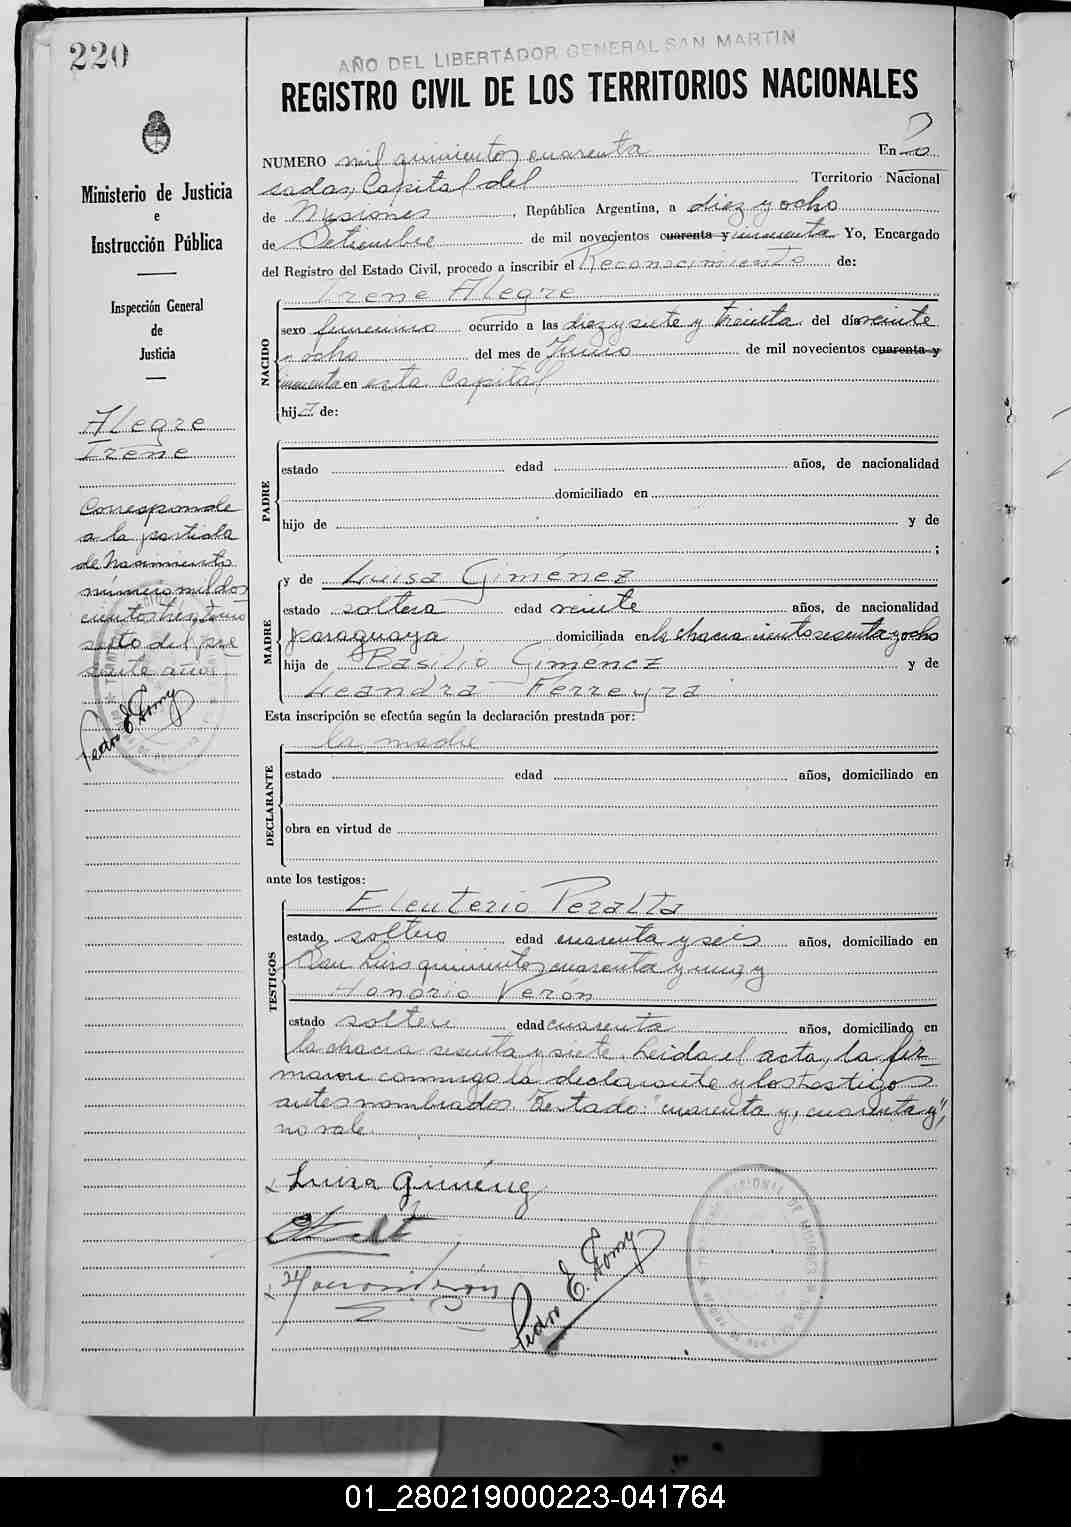 220
AÑO DEL LIBERTADOR GENERAL SAN MARTIN
REGISTRO CIVIL DE LOS TERRITORIOS NACIONALES
Ministerio de Justicia
e
Instrucción Pública
Inspección General
de
Justicia
Alegre
Irene
Corresponde
a la partida
de nacimiento
número mil dos
cientos treinta
del pre
sente año
Pedro E. Fomy
NUMERO mil quinientos cuarenta En Po
sadas, Capital del Territorio Nacional
de Misiones, República Argentina, a diez y ocho
de Setiembre de mil novecientos cuarenta y cincuenta Yo, Encargado
del Registro del Estado Civil, procedo a inscribir el Reconocimiento de:
Irene Alegre
NACIDO
sexo femenino ocurrido a las diez y siete y treinta del día veinte
y ocho del mes de Junio de mil novecientos cuarenta y
cincuenta en esta Capital
hija de:
PADRE
estado edad años, de nacionalidad
domiciliado en
hijo de y de
;
MADRE
y de Luisa Giménez
estado soltera edad veinte años, de nacionalidad
paraguaya domiciliada en la chacra ciento sesenta y ocho
hija de Basilio Giménez y de
Leandra Ferreyra
Esta inscripción se efectúa según la declaración prestada por:
la madre
DECLARANTE
estado edad años, domiciliado en
obra en virtud de
ante los testigos:
TESTIGOS
Eleuterio Peralta
estado soltero edad cuarenta y seis años, domiciliado en
San Luis quinientos cuarenta y uno, y
Honorio Verón
estado soltero edad cuarenta años, domiciliado en
la chacra sesenta y siete. Leida el acta, la fir-
maron conmigo la declarante y los testigos
antes nombrados. Testado: "cuarenta y, cuarenta y",
no vale.
Luisa Giménez
Pedro E. Fomy
01_280219000223-041764